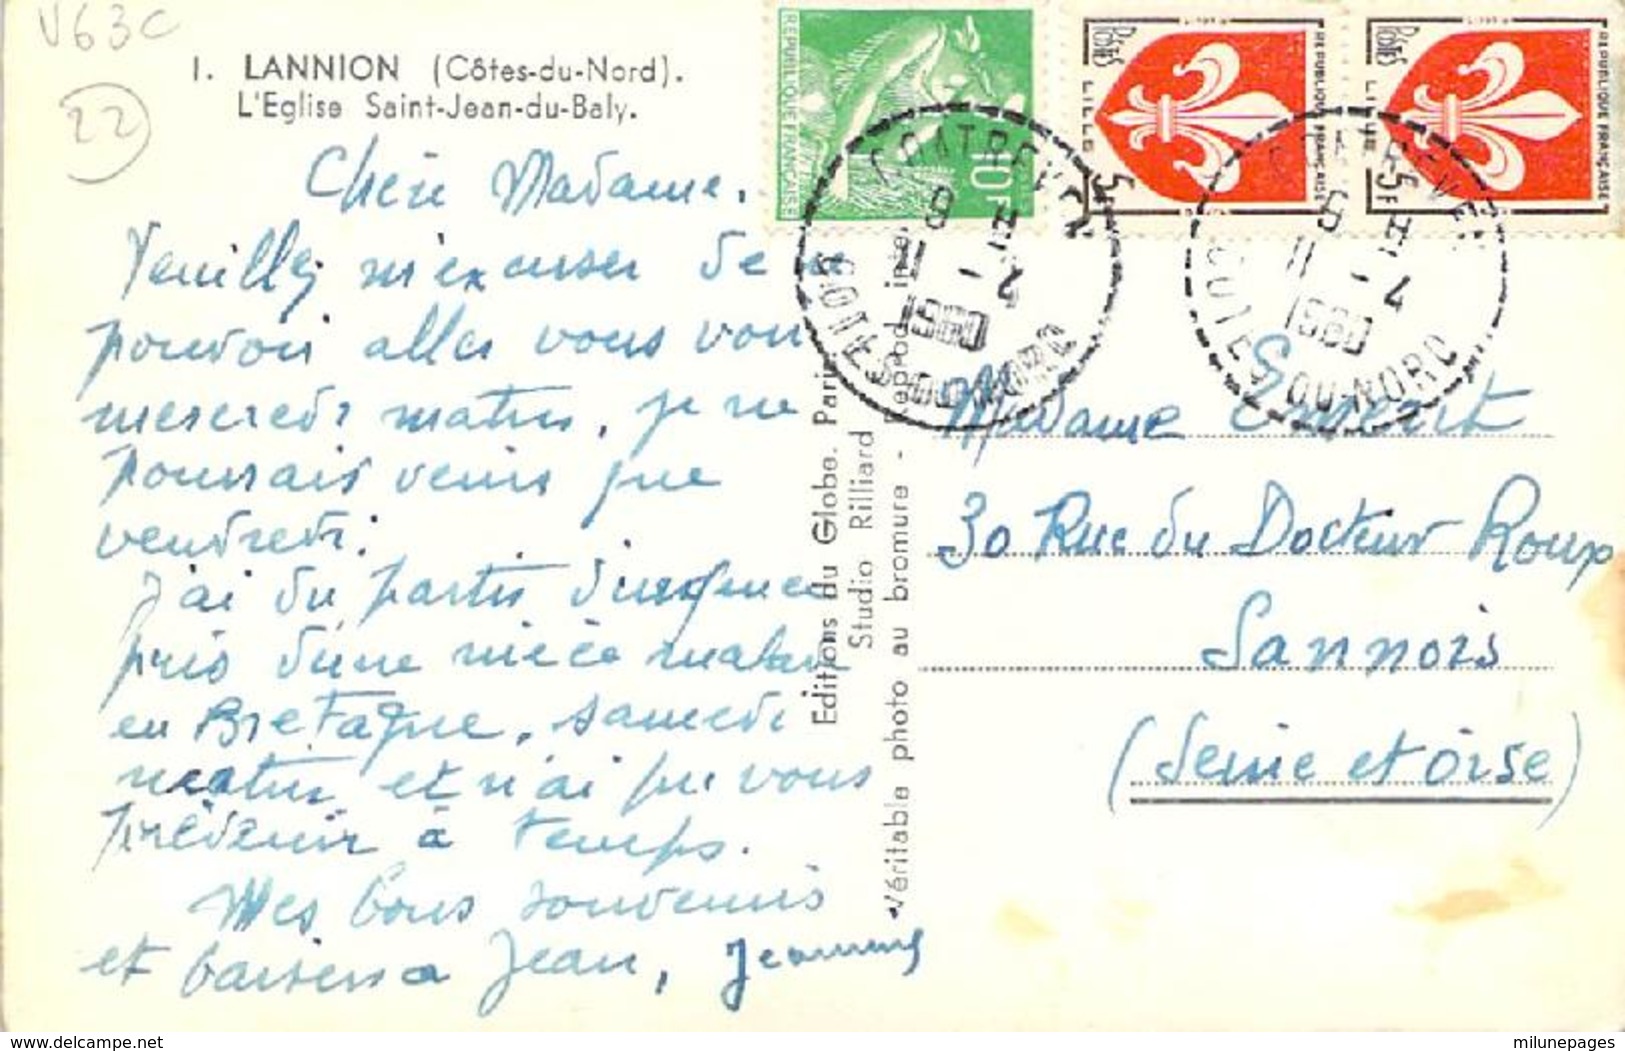 V63C
22
1. LANNION (Côtes-du-Nord).
L'Eglise Saint-Jean-du-Baly.
Chère Madame,
Veuillez m'excuser de ne
pouvoir aller vous voir
mercredi matin, je ne
pourrais venir que
vendredi.
J'ai du partir d'urgence
près d'une nièce malade
en Bretagne, samedi
matin et n'ai pu vous
prévenir à temps.
Mes bons souvenirs
et baisers a Jean, Jeanne
Editions du Globe. Paris
Studio Rilliard
Véritable photo au bromure - Reprod. inter
REPUBLIQUE FRANÇAISE
10F
Postes
LILLE
5F
REPUBLIQUE FRANÇAISE
Postes
LILLE
5F
REPUBLIQUE FRANÇAISE
COATREVEN
9 H
11 - 4
1960
COTES DU NORD
COATREVEN
9 H
11 - 4
1960
COTES DU NORD
Madame
30 Rue du Docteur Roux
Sannois
(Seine et Oise)
www.delcampe.net
milunepages